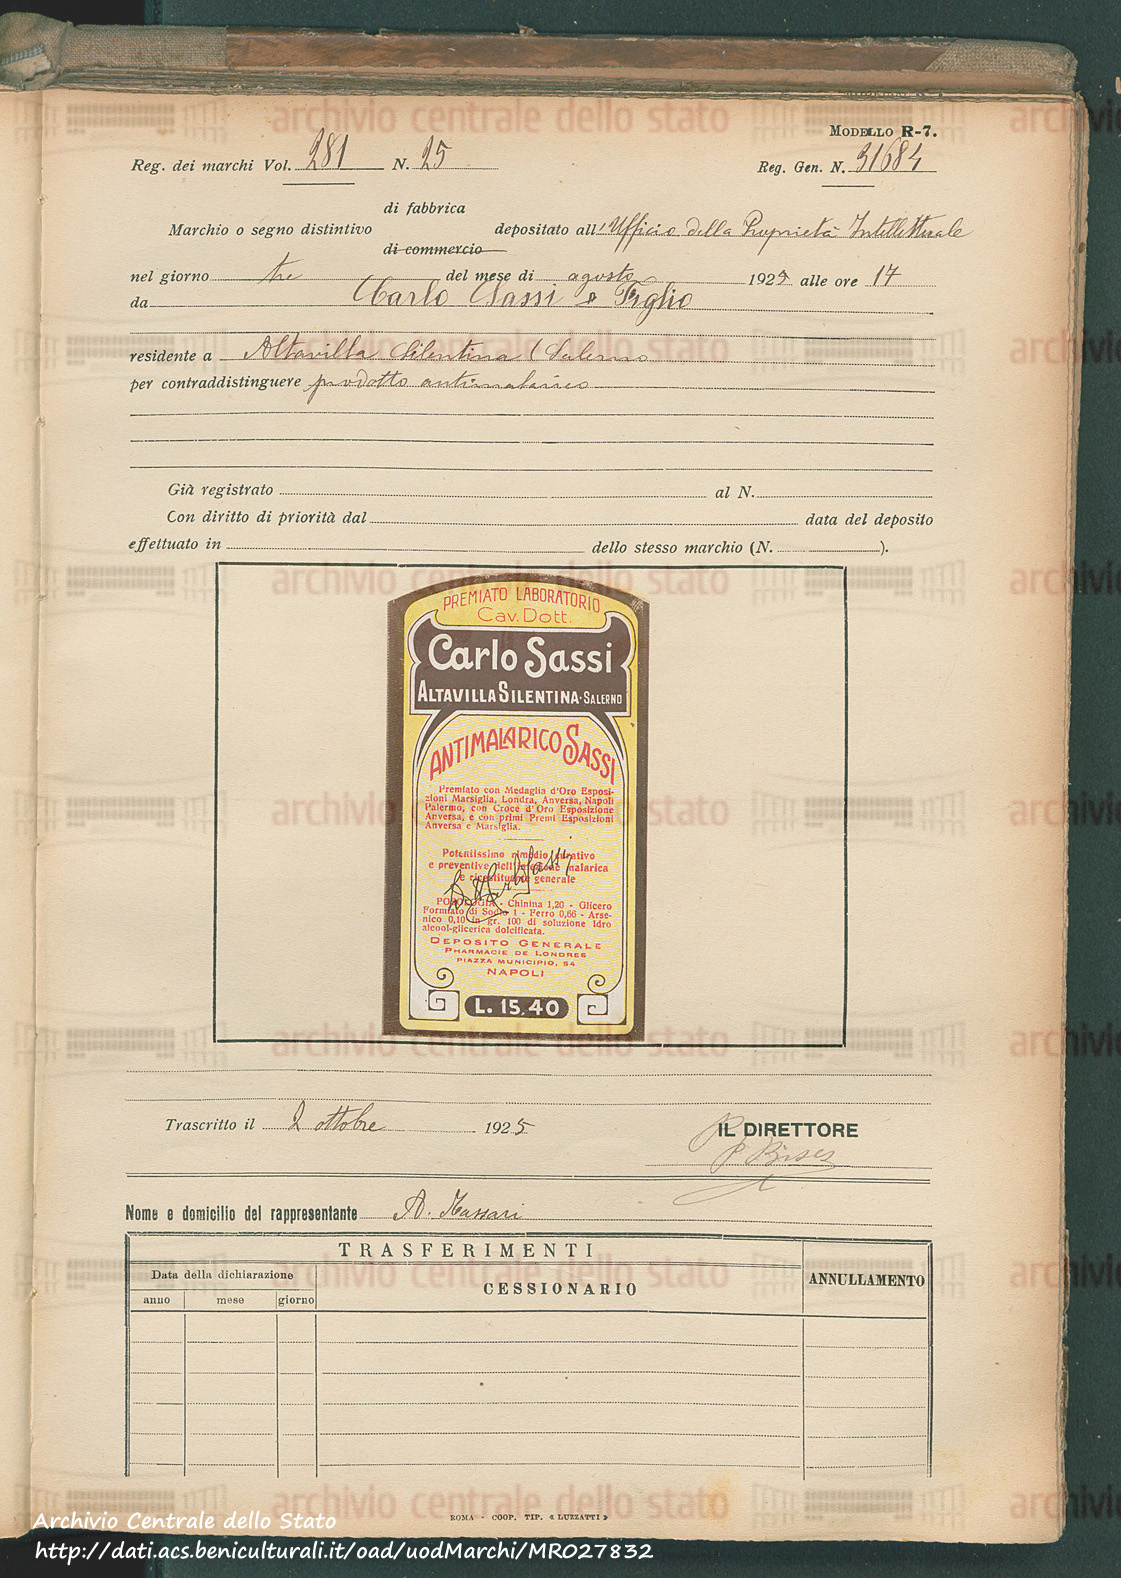 MODELLO R-7.
Reg. dei marchi Vol. 281 N. 25 Reg. Gen. N. 31684
di fabbrica
Marchio o segno distintivo depositato all'Ufficio della Proprietà Intellettuale
di commercio
nel giorno tre del mese di agosto 1925 alle ore 17
da Carlo Sassi e Figlio
residente a Altavilla Silentina (Salerno
per contraddistinguere prodotto antimalarico
Già registrato al N.
Con diritto di priorità dal data del deposito
effettuato in dello stesso marchio (N. ).
PREMIATO LABORATORIO
Cav. Dott.
Carlo Sassi
ALTAVILLA SILENTINA-SALERNO
ANTIMALARICO SASSI
Premiato con Medaglia d'Oro Esposi-
zioni Marsiglia, Londra, Anversa, Napoli
Palermo, con Croce d'Oro Esposizione
Anversa, e con primi Premi Esposizioni
Anversa e Marsiglia.
Potentissimo rimedio curativo
e preventivo dell'infezione malarica
e ricostituente generale
Dr Carlo Sassi
POSOLOGIA - Chinina 1,20 - Glicero
Formiato di Sodio 1 - Ferro 0,66 - Arse-
nico 0,10 in gr. 100 di soluzione idro
alcool-glicerica dolcificata.
DEPOSITO GENERALE
PHARMACIE DE LONDRES
PIAZZA MUNICIPIO, 54
NAPOLI
L. 15,40
Trascritto il 2 ottobre 1925
IL DIRETTORE
Nome e domicilio del rappresentante A. Massari
TRASFERIMENTI
Data della dichiarazione
CESSIONARIO
ANNULLAMENTO
anno mese giorno
ROMA - COOP. TIP. « LUZZATTI »
archivio centrale dello stato
Archivio Centrale dello Stato
http://dati.acs.beniculturali.it/oad/uodMarchi/MR027832